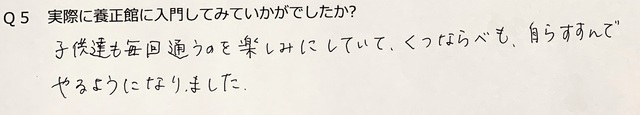 Q5 実際に養正館に入門してみていかがでしたか?
子供達も毎回通うのを楽しみにしていて、くつならべも、自らすすんで
やるようになりました.